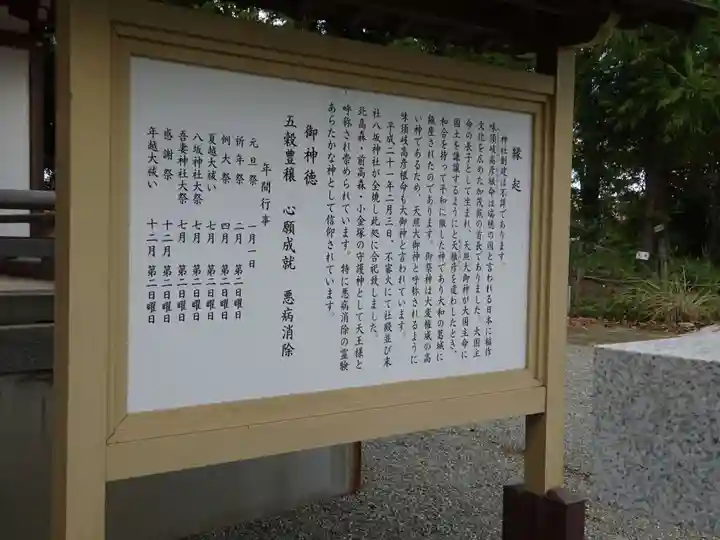 縁起
神社創建は不詳であります。
味須岐高彦根命は瑞穂の国と言われる日本に稲作
文化を広めた加茂族の首長でありました。大国主
命の長子として生まれ、天照大御神が大国主命に
国土を譲譲するようにと天稚彦を遣わしたとき、
和合を持って平和に徹した神であり大和の葛城に
鎮座されたのであります。御祭神は大変権威の高
い神であるため、天照大御神と呼称されるように
味須岐高彦根命も大御神と言われています。
平成二十一年二月三日、不審火にて社殿並び末
社八坂神社が全焼し此処に合祀致しました。
北高森・前高森・小金塚の守護神として天王様と
呼称され崇められています。特に悪病消除の霊験
あらたかな神として信仰されています。
御神徳
五穀豊穣 心願成就 悪病消除
年間行事
元旦祭 一月一日
祈年祭 二月 第二日曜日
例大祭 四月 第二日曜日
夏越大祓い 七月 第二日曜日
八坂神社大祭 七月 第二日曜日
吾妻神社大祭 七月 第二日曜日
感謝祭 十二月 第二日曜日
年越大祓い 十二月 第二日曜日